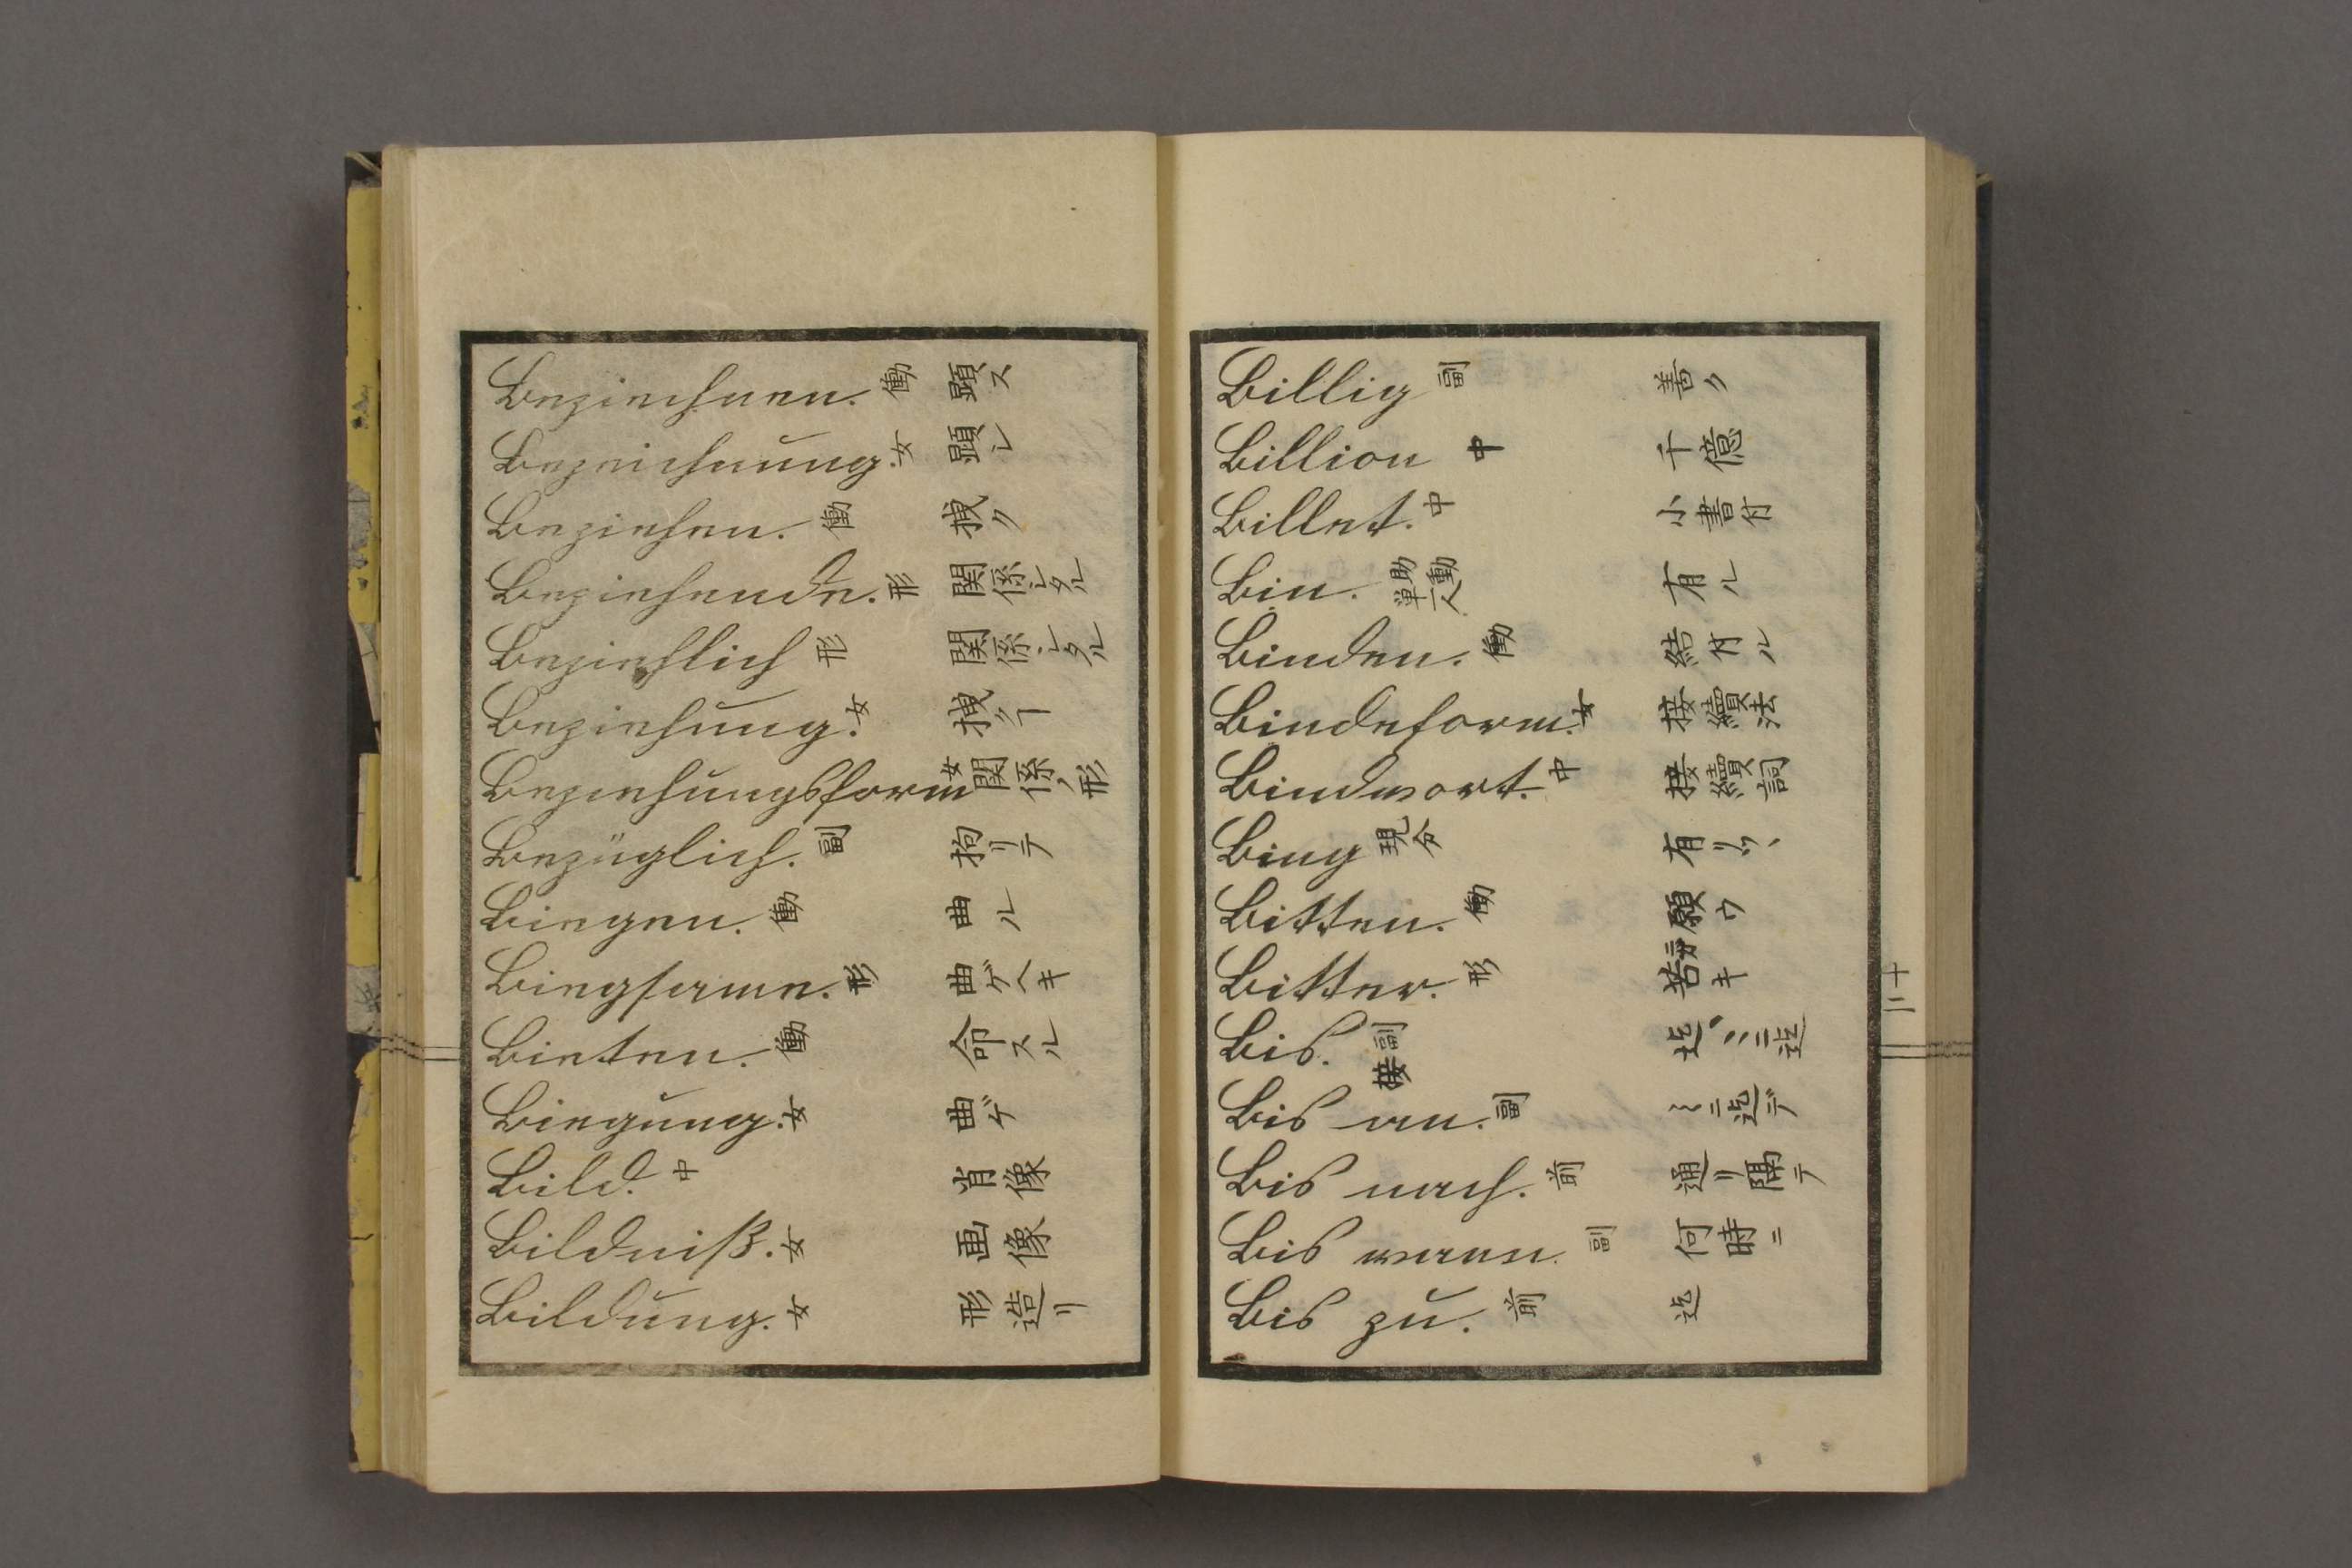 Bezeichnen. 働 顕ス
Bezeichnung. 女 顕シ
Beziehen. 働 拽ク
Beziehende. 形 関係シタル
Beziehlich 形 関係シタル
Beziehung. 女 拽クヿ
Beziehungsform 女 関係ノ形
Bezüglich. 副 拘リテ
Biegen. 働 曲ル
Biegsame. 形 曲ゲヘキ
Bieten. 働 命スル
Biegung. 女 曲ゲ
Bild. 中 肖像
Bildniß. 女 画像
Bildung. 女 形造リ
Billig 副 善ク
Billion 中 千億
Billet. 中 小書付
Bin. 助動単一人 有ル
Binden. 働 結付ル
Bindeform. 女 接續法
Bindwort. 中 接續詞
Bing 現分 有リツヽ
Bitten. 働 願ウ
Bitter. 形 苦キ
Bis. 副接 迄
Bis an. 副 ニ迄デ
Bis nach. 前 通リ隔テ
Bis wann. 副 何時ニ
Bis zu. 前 迄
十二